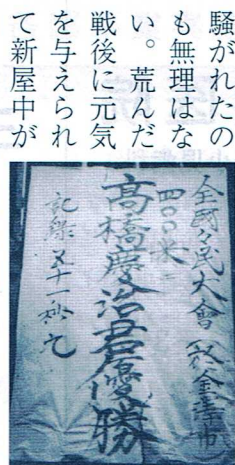 騒がれたの
も無理はな
い。荒んだ
戦後に元気
を与えられ
て新屋中が
全國々民大會 於金澤市
四〇〇米
高橋慶治君優勝
記録 五十一秒九